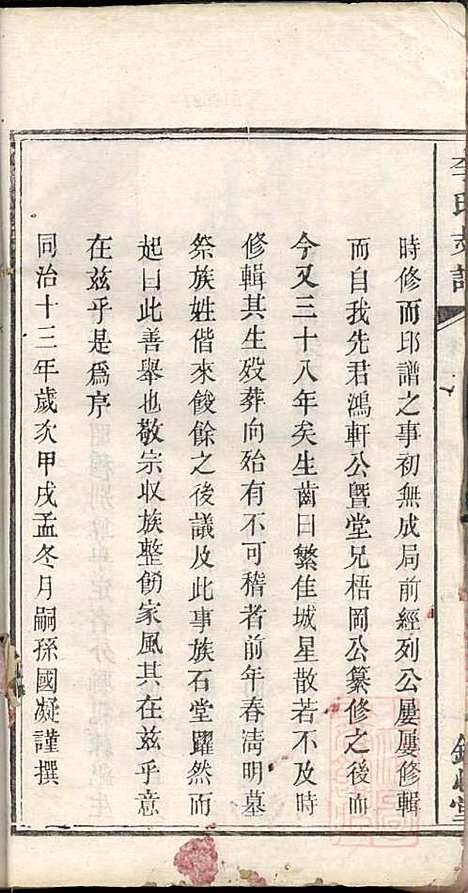 李氏支譜
時修而邱譜之事初無成局前經列公屢屢修輯
而自我先君鴻軒公暨堂兄梧岡公纂修之後而
今又三十八年矣生齒日繁佳城星散若不及時
修輯其生殁葬向殆有不可稽者前年春淸明墓
祭族姓偕來餕餘之後議及此事族石堂躍然而
起曰此善舉也敬宗収族整飭家風其在兹乎意
在兹乎是爲序
同治十三年歲次甲戌孟冬月嗣孫國凝謹撰